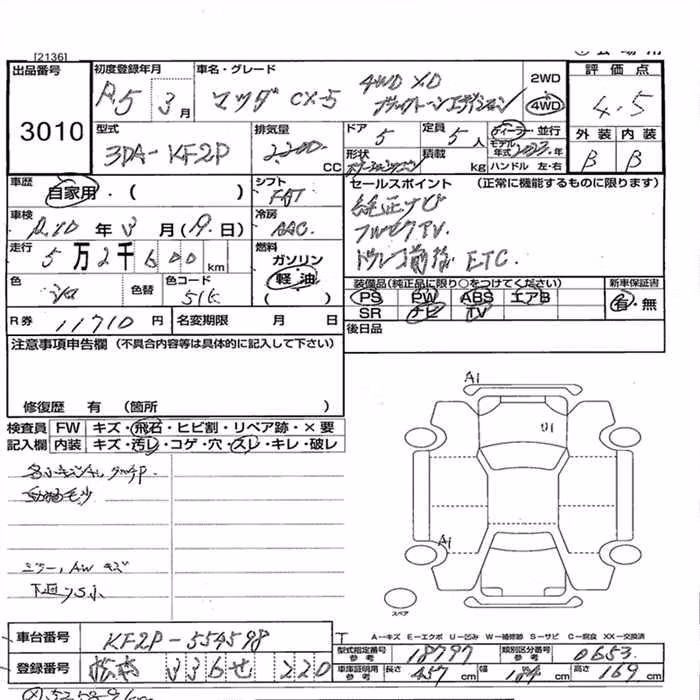 [2136]
出品番号
3010
初度登録年月
R.5 3月
車名・グレード
マツダ CX-5
4WD XD
ブラックトーンエディション
2WD
4WD
評価点
4.5
型式
3DA-KF2P
排気量
2,200 CC
ドア 5
定員 5人
ディーラー・並行
モデル年式 2023年
形状
積載 kg
ハンドル 左・右
外装 内装
B B
車歴 自家用・( )
シフト
FAT
車検 R.10年3月(19日)
冷房
AAC
走行 5万2千600km
燃料 ガソリン
軽油
( )
色 シロ
色替
色コード
51K
セールスポイント (正常に機能するものに限ります)
純正ナビ
フルセグTV.
ドラレコ前後 ETC.
装備品(純正品に限り○をつけてください)
PS PW ABS エアB
SR ナビ TV
新車保証書
有・無
R券 11710円
名変期限 月 日
後日品
注意事項申告欄 (不具合内容等は具体的に記入して下さい)
修復歴 有 (箇所 )
検査員記入欄
FW キズ・飛石・ヒビ割・リペア跡・×要
内装 キズ・汚レ・コゲ・穴・スレ・キレ・破レ
動物毛少
ミラー, AW キズ
下廻りS小
A1
U1
A1
スペア
A－キズ E－エクボ U－凹み W－補修跡 S－サビ C－腐食 XX－交換済
車台番号 KF2P-554598
登録番号 松本 336 せ 220
型式指定番号 参考 18797
類別区分番号 参考 0653
車庫証明用 参考 長さ 457cm 幅 184cm 高さ 169cm